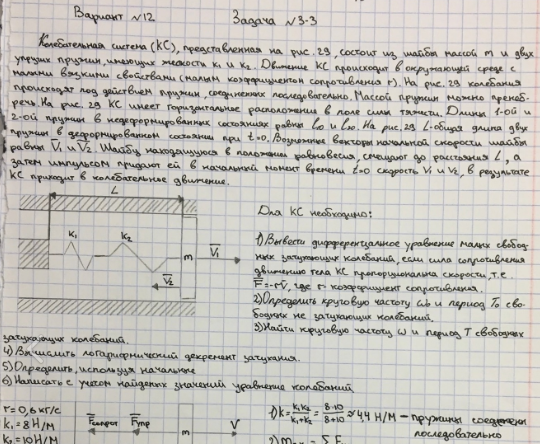 Вариант №12 Задача №3-3
Колебательная система (КС), представленная на рис. 29, состоит из шайбы массой m и двух
упругих пружин, имеющих жесткости k₁ и k₂. Движение КС происходит в окружающей среде с
малыми вязкими свойствами (малым коэффициентом сопротивления r). На рис. 29 колебания
происходят под действием пружин, соединенных последовательно. Массой пружин можно пренеб-
речь. На рис. 29 КС имеет горизонтальное расположение в поле силы тяжести. Длины 1-ой и
2-ой пружин в недеформированных состояниях равны l₁₀ и l₂₀. На рис. 29 L-общая длина двух
пружин в деформированном состоянии при t=0. Возможные векторы начальной скорости шайбы
равны V̅₁ и V̅₂. Шайбу находящуюся в положении равновесия, смещают до расстояния L, а
затем импульсом придают ей в начальный момент времени t=0 скорость V₁ и V₂, в результате
КС приходит в колебательное движение.
L
k₁ k₂ m V̅₁
V̅₂
Для КС необходимо:
1) Вывести дифференциальное уравнение малых свобод-
ных затухающих колебаний, если сила сопротивления
движению тела КС пропорциональна скорости, т.е.
F̅=-rV̅, где r- коэффициент сопротивления.
2) Определить круговую частоту ω₀ и период T₀ сво-
бодных не затухающих колебаний.
3) Найти круговую частоту ω и период T свободных
затухающих колебаний.
4) Вычислить логарифмический декремент затухания.
5) Определить, используя начальные
6) Написать с учетом найденных значений уравнение колебаний
r=0,6 кг/с
k₁=8 Н/м
k₂=10 Н/м
F̅сопрот F̅упр m V
1) k=k₁k₂/k₁+k₂=8·10/8+10≈4,4 Н/м – пружины соединены
последовательно